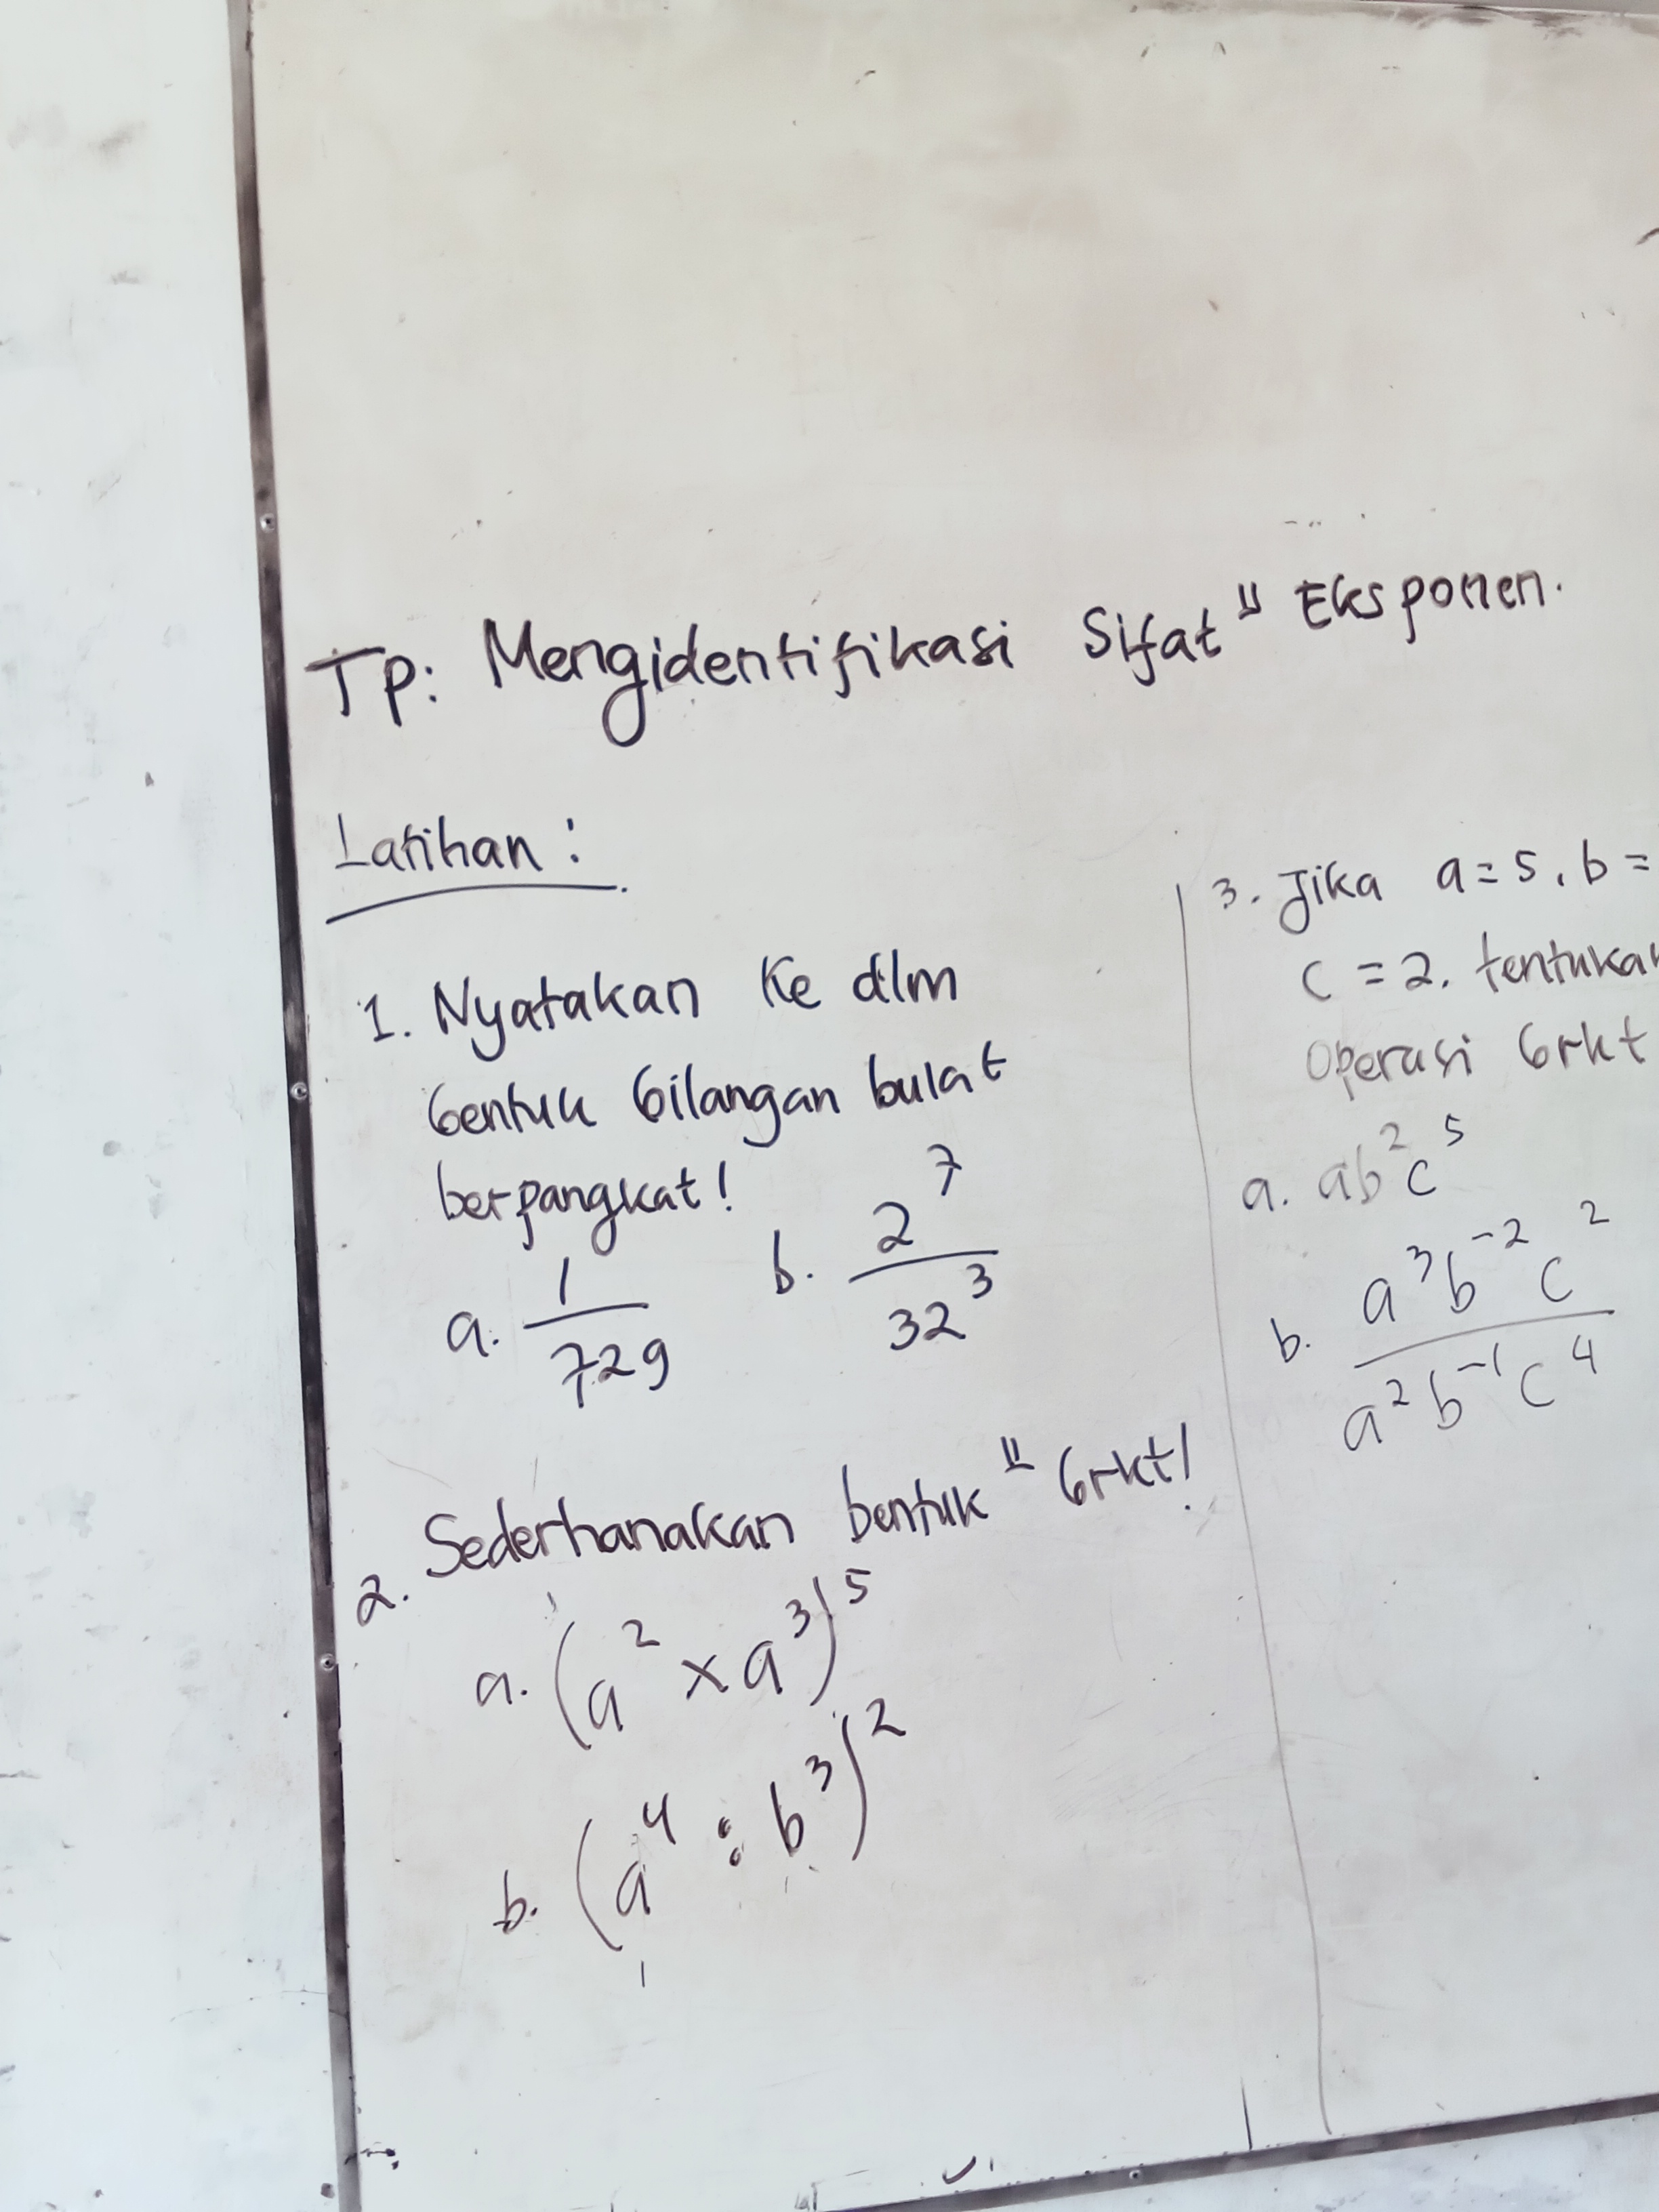 Tp: Mengidentifikasi Sifat" Eksponen.
Latihan :
1. Nyatakan ke dlm
bentuk bilangan bulat
berpangkat!
a. 1/729 b. 2⁷/32³
2. Sederhanakan bentuk" brkt!
a. (a² × a³)⁵
b. (a⁴ : b³)²
3. Jika a = 5, b =
c = 2. tentukan
operasi brkt
a. ab²c⁵
b. a³b⁻²c²/a²b⁻¹c⁴